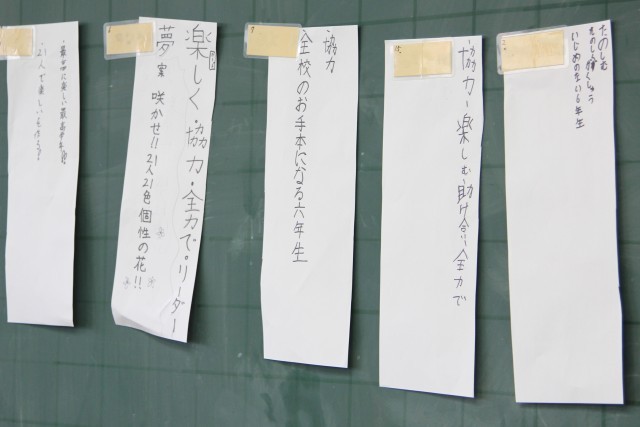 たのしむ
たのしく学しゅう
いじめのない6年生
協力・楽しむ助け合い全力で
協力
全校のお手本になる六年生
楽しく・協力・全力で。リーダー
夢 咲かせ!!21人21色個性の花!!
21人で楽しい